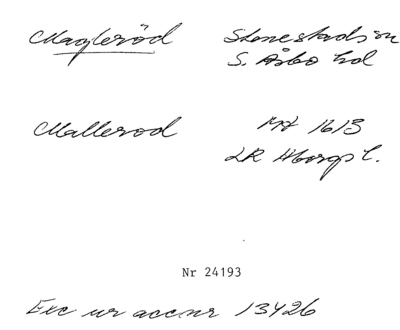 Magleröd Stenestads sn
S. Åsbo hd
Mallerod Mt 1613
LR Hborgs l.
Nr 24193
Exc ur acc.nr 13426